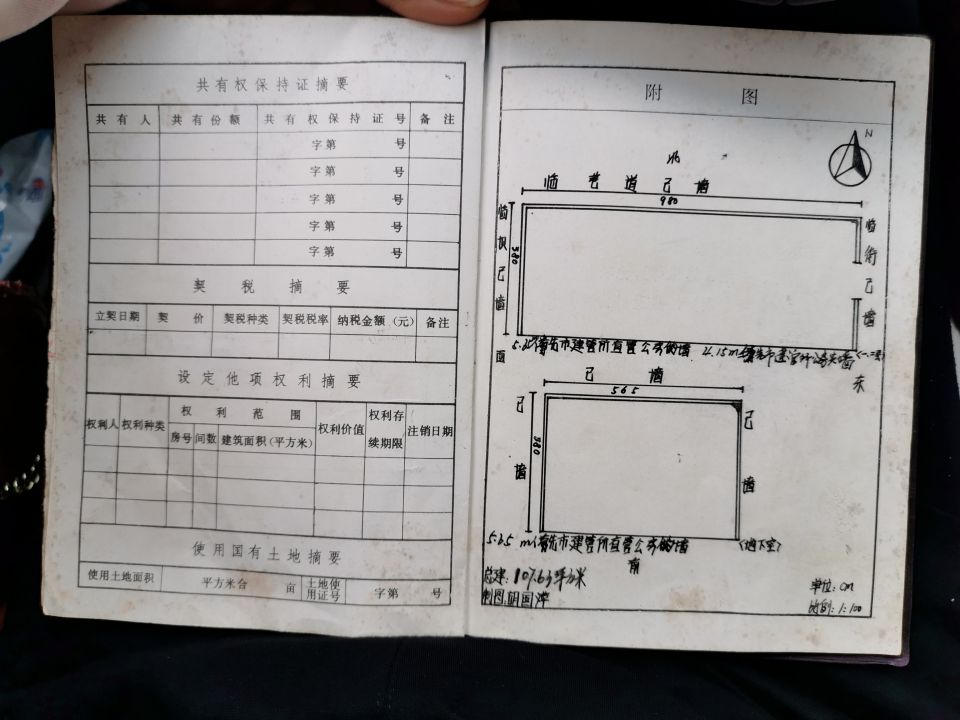 共有权保持证摘要
共有人 共有份额 共有权保持证号 备注
字第 号
字第 号
字第 号
字第 号
字第 号
契税摘要
立契日期 契价 契税种类 契税税率 纳税金额(元) 备注
设定他项权利摘要
权利人 权利种类 权利范围 权利价值 权利存续期限 注销日期
房号 间数 建筑面积(平方米)
使用国有土地摘要
使用土地面积 平方米合 亩 土地使用证号 字第 号
附图
N
临巷道己墙
980
380
己墙
临街己墙
5.65 市建管所直管公房的墙
东
己墙
565
己墙
380
己墙
5.65 m 市建管所直管公房的墙 (地下室)
南
总建: 107.63平方米
制图:胡国萍
单位: cm
比例: 1:100